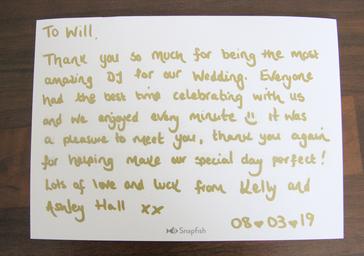 To Will,
Thank you so much for being the most
amazing DJ for our Wedding. Everyone
had the best time celebrating with us
and we enjoyed every minute ☺ it was
a pleasure to meet you, thank you again
for helping make our special day perfect!
Lots of love and luck from Kelly and
Ashley Hall xx
08♥03♥19
Snapfish